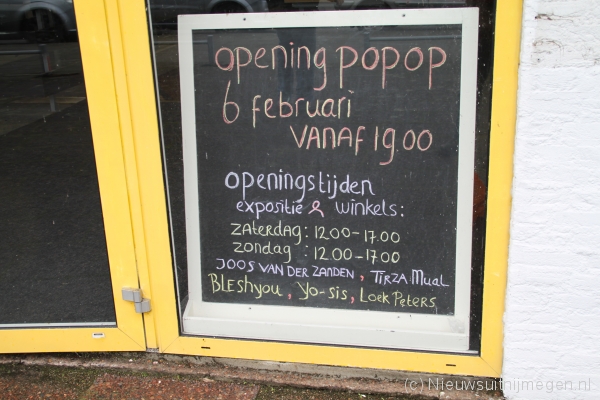 opening POPOP
6 februari
VANAF 19.00
openingstijden
expositie & winkels:
zaterdag: 12.00-17.00
zondag: 12.00-17.00
JOOS VAN DER ZANDEN, TirZA Mual
BLeshyou, Yo-sis, Loek Peters
(c) Nieuwsuitnijmegen.nl